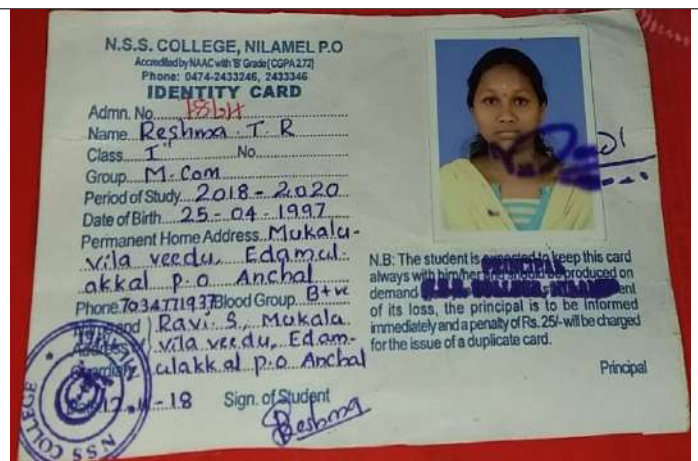 N.S.S. COLLEGE, NILAMEL P.O
Accredited by NAAC with 'B' Grade [CGPA 2.72]
Phone: 0474-2433246, 2433346
IDENTITY CARD
Admn. No.
Name Reshma. T. R
Class I No.
Group M. Com
Period of Study 2018 - 2020
Date of Birth 25 - 04 - 1997
Permanent Home Address Mukalu-
vila veedu, Edamul-
akkal p.o Anchal
Phone. 7034771937 Blood Group. B+ve
and Ravi. S, Mukala
vila veedu, Edam-
ulakkal p.o Anchal
- 18 Sign. of Student
Reshma
NSS COLLEGE
N.B: The student is expected to keep this card
always with him/her and should be produced on
demand
of its loss, the principal is to be informed
immediately and a penalty of Rs. 25/- will be charged
for the issue of a duplicate card.
Principal